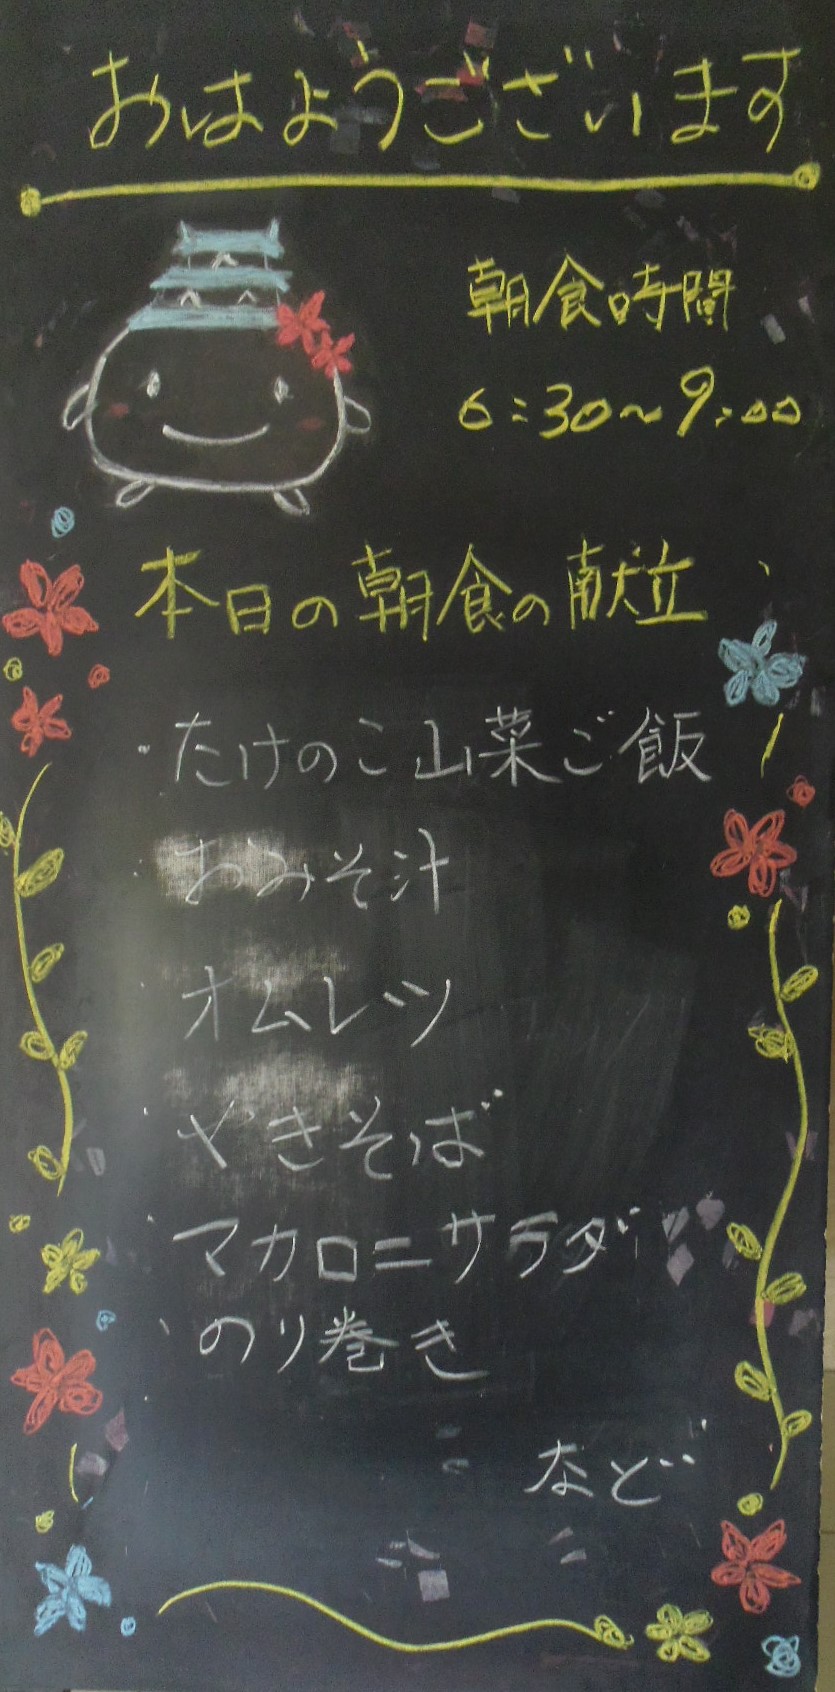 おはようございます
朝食時間
6:30~9:00
本日の朝食の献立
・たけのこ山菜ご飯
・おみそ汁
・オムレツ
・やきそば
・マカロニサラダ
・のり巻き
など